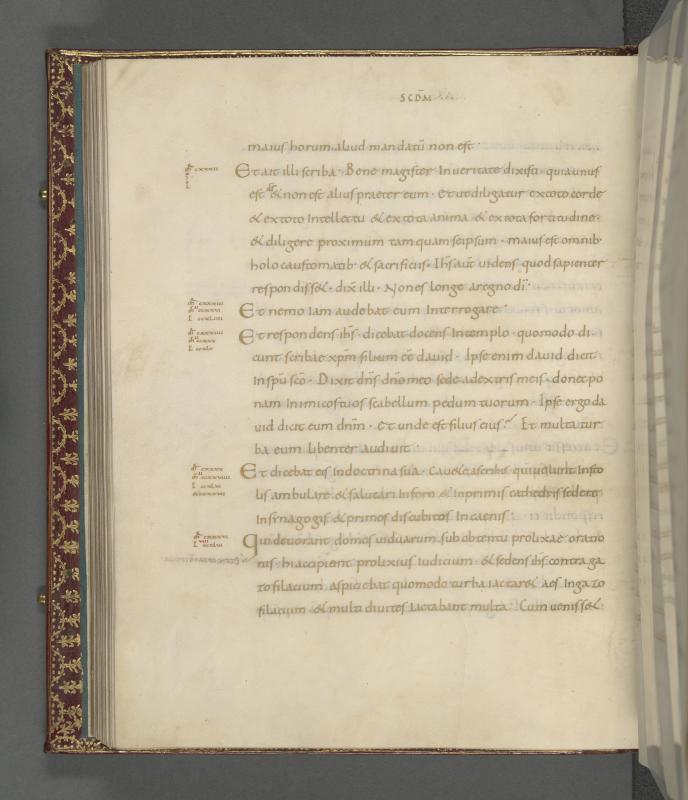 SCDM
maius horum aliud mandatū non est·
Et ait illi scriba · Bene magister In ueritate dixisti · quia unus
est d̄s & non est alius praeter eum · Et ut diligatur ex toto corde
& ex toto Intellectu & ex tota anima & ex tota fortitudine ·
& diligere proximum tam quam seipsum · maius est omnib·
holocaustomatib· & sacrificiis · Ihs aūt uidens quod sapienter
respondisset · dix̄ illi · Non es longe a regno dī ·
Et nemo iam audebat eum Interrogare ·
Et respondens ihs̄ · dicebat docens In templo · quomodo di
cunt scribae xp̄m filium eē dauid · Ipse enim dauid dicit
In sp̄u sc̄o · Dixit dn̄s dn̄o meo sede a dextris meis · donec po
nam Inimicos tuos scabellum pedum tuorum · Ipse ergo da
uid dicit eum dn̄m · Et unde est filius eius? Et multa tur
ba eum libenter audiuit ·
Et dicebat eis In doctrina sua · Cauete a scribis qui uolunt In sto
lis ambulare & salutari In foro & In primis cathedris sedere
In synagogis & primos discubitos In caenis ·
Qui deuorant domos uiduarum sub obtentu prolixae oratio
nis · hi accipient prolixius iudicium · & sedens ihs̄ contra ga
zofilacium aspiciebat quomodo turba iactaret aes In gazo
filacium & multi diuites iactabant multa · Cum uenisset